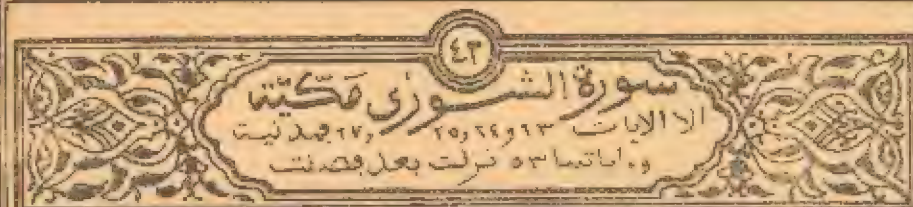 ٤٢
سورة الشورى مكية
الا الايات ٢٣ و٢٤ و٢٥ و٢٧ فمدنية
وءاياتها ٥٣ نزلت بعد فصلت